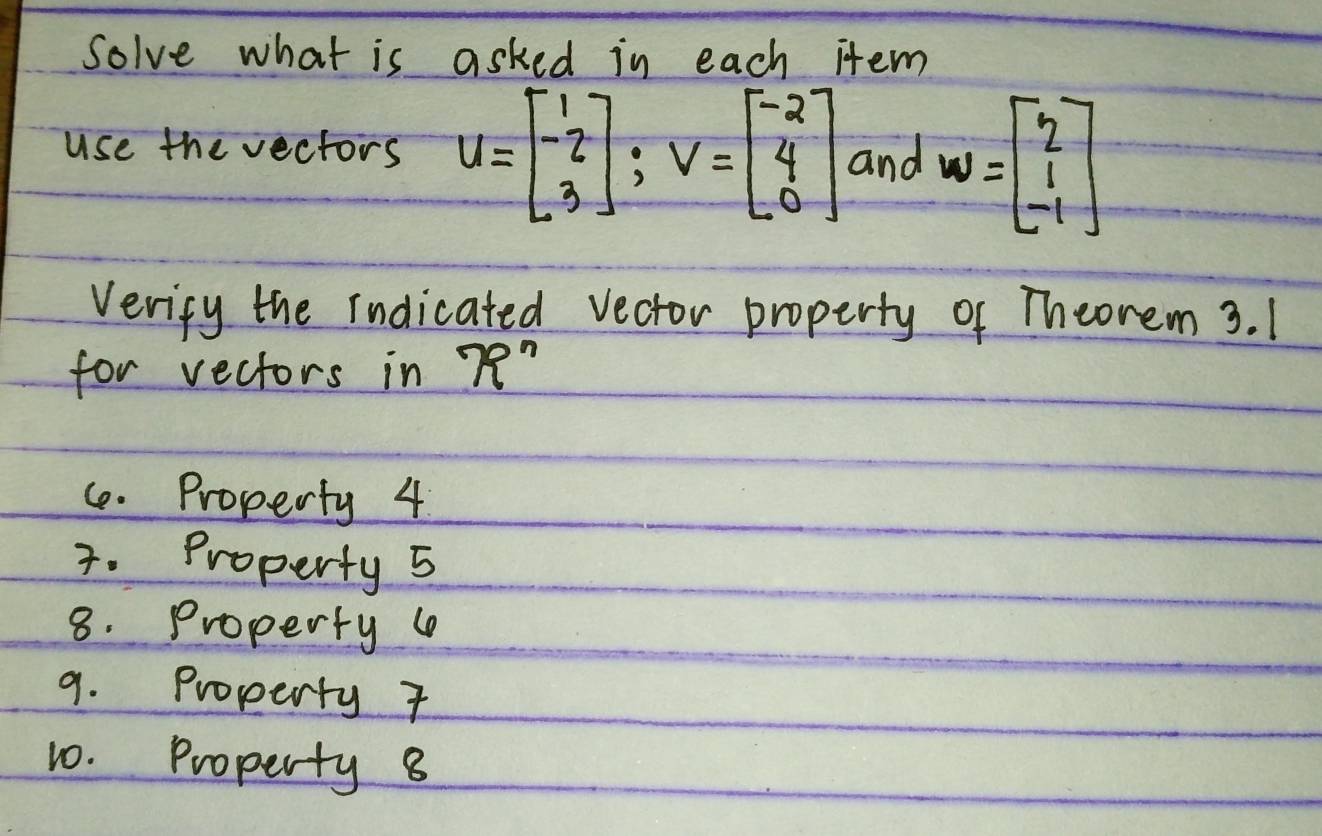 Solve what is asked in each item
use the vectors u = [1 -2 3] ; v = [-2 4 0] and w = [2 1 -1]
Verify the indicated vector property of Theorem 3.1
for vectors in Rⁿ
6. Property 4
7. Property 5
8. Property 6
9. Property 7
10. Property 8